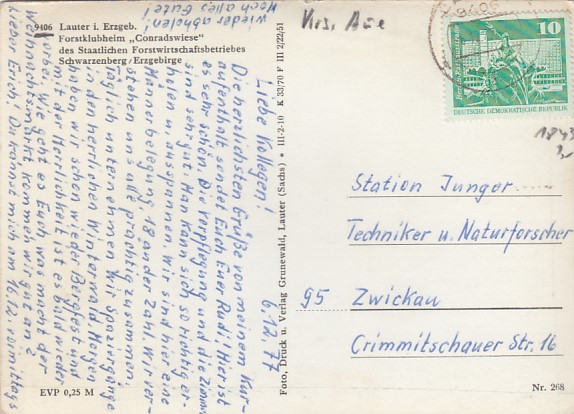 9406 Lauter i. Erzgeb.
Forstklubheim „Conradswiese"
des Staatlichen Forstwirtschaftsbetriebes
Schwarzenberg/Erzgebirge
Krs. Aue
9406
10
DEUTSCHE DEMOKRATISCHE REPUBLIK
1843
3,-
6.12.77
Liebe Kollegen!
Die herzlichsten Grüße von meinem Kur-
aufenthalt sendet Euch Euer Rudi! Hier ist
es sehr schön. Die Verpflegung und die Zimmer
sind sehr gut. Man kann sich so richtig er-
holen u. ausspannen. Wir sind hier eine
Männerbelegung, 18 an der Zahl. Wir ver-
stehen uns alle prächtig zusammen.
Täglich unternehmen wir Spaziergänge
in den herrlichen Winterwald. Morgen
haben wir schon wieder Bergfest und
mit der Herrlichkeit ist es bald wieder
vorbei. Wie geht es Euch, was macht der
Weihnachtsmarkt, kommen wir gut an?
Lieber Erich! Du kannst mich am 16.12. vormittags
wieder abholen!
Noch alles Gute!
Foto, Druck u. Verlag Grunewald, Lauter (Sachs) • III-2-10 K 53/70 F III 2/22/51
Station Junger
Techniker u. Naturforscher
95 Zwickau
Crimmitschauer Str. 16
EVP 0,25 M
Nr. 268